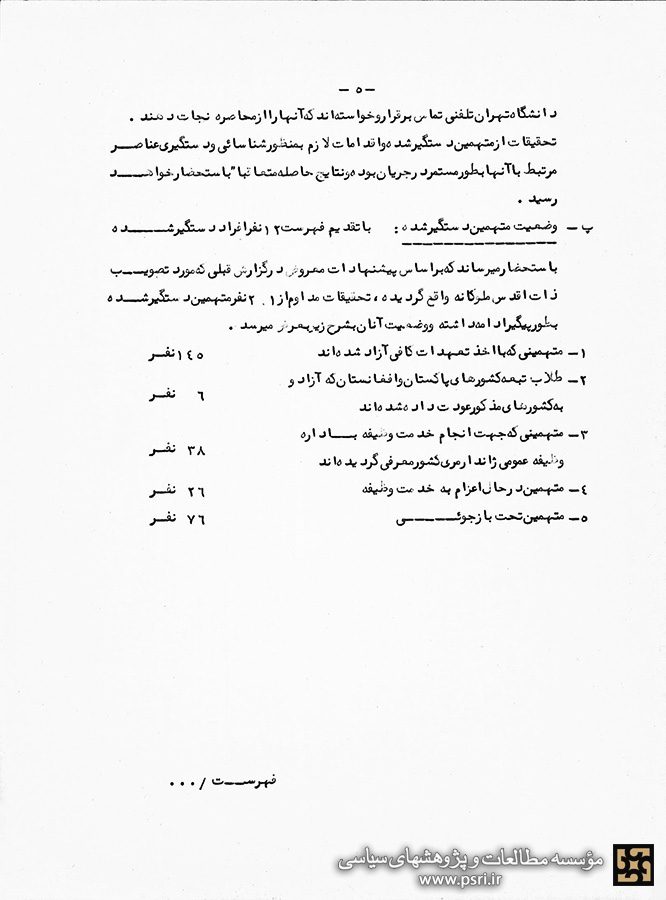 - ۵ -
دانشگاه تهران تلفنی تماس برقرار و خواسته‌اند که آنها را از محاصره نجات دهند .
تحقیقات از متهمین دستگیر شده و اقدامات لازم بمنظور شناسائی و دستگیری عناصر
مرتبط با آنها بطور مستمر در جریان بوده و نتایج حاصله متعاقبا" باستحضار خواهد
رسید .
پ - وضعیت متهمین دستگیر شده : با تقدیم فهرست ۱۲ نفر افراد دستگیر شده
باستحضار میرساند که بر اساس پیشنهادات معروض در گزارش قبلی که مورد تصویب
ذات اقدس ملوکانه واقع گردیده ، تحقیقات مداوم از نفر متهمین دستگیر شده
بطور پیگیر ادامه داشته و وضعیت آنان بشرح زیر بعرض میرسد .
۱- متهمینی که با اخذ تعهدات کافی آزاد شده‌اند ۱۴۵ نفر
۲- طلاب تبعه کشورهای پاکستان و افغانستان که آزاد و
۶ نفر
به کشورهای مذکور عودت داده شده‌اند
۳- متهمینی که جهت انجام خدمت وظیفه باداره
۳۸ نفر
وظیفه عمومی ژاندارمری کشور معرفی گردیده‌اند
۴- متهمین در حال اعزام به خدمت وظیفه ۲۶ نفر
۵- متهمین تحت بازجوئی ۷۶ نفر
فهرست / ...
مؤسسه مطالعات و پژوهشهای سیاسی
www.psri.ir